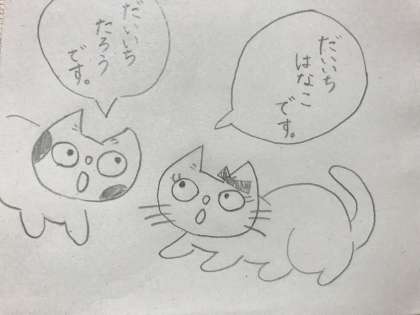 だいいち
はなこ
です。
だいいち
たろう
です。